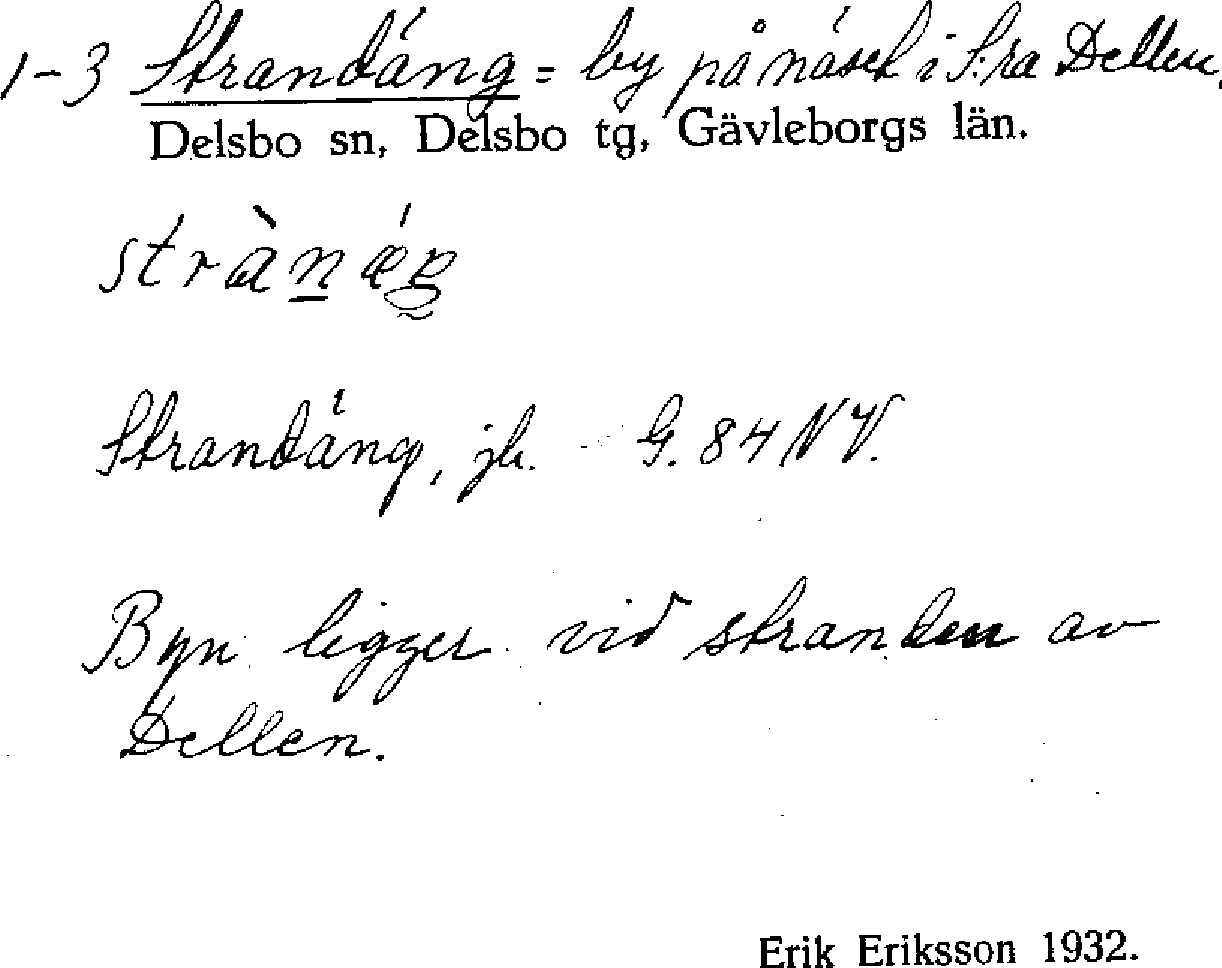 1-3 Strandäng = by på näset i S:ra Dellen.
Delsbo sn, Delsbo tg, Gävleborgs län.
Strandäng, jb. G. 84 NV.
Byn ligger vid stranden av
Dellen.
Erik Eriksson 1932.